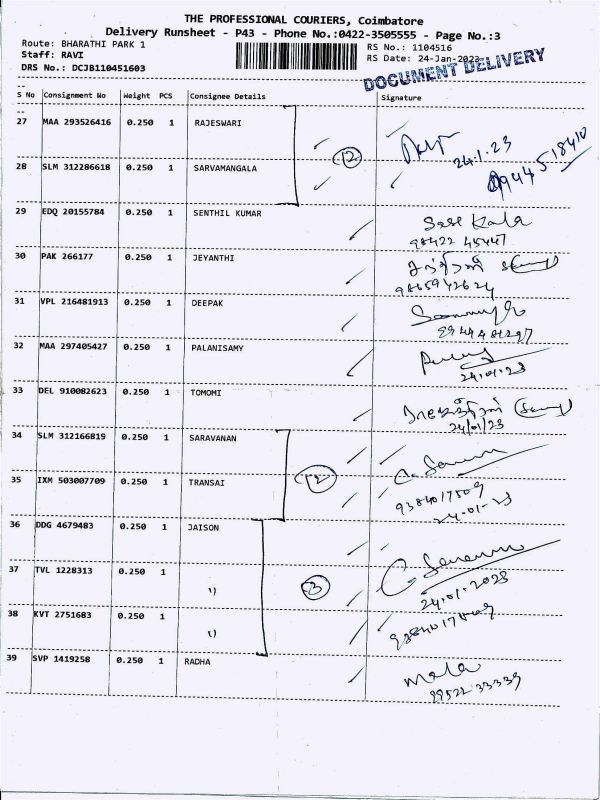 THE PROFESSIONAL COURIERS, Coimbatore
Delivery Runsheet - P43 - Phone No.:0422-3505555 - Page No.:3
Route: BHARATHI PARK 1
Staff: RAVI
DRS No.: DCJB110451603
RS No.: 1104516
RS Date: 24-Jan-2023
DOCUMENT DELIVERY
S No Consignment No Weight PCS Consignee Details Signature
27 MAA 293526416 0.250 1 RAJESWARI
24.1.23
28 SLM 312286618 0.250 1 SARVAMANGALA
2
29 EDQ 20155784 0.250 1 SENTHIL KUMAR
98422 45447
30 PAK 266177 0.250 1 JEYANTHI
31 VPL 216481913 0.250 1 DEEPAK
32 MAA 297405427 0.250 1 PALANISAMY
24.01.23
33 DEL 910082623 0.250 1 TOMOMI
24/01/23
34 SLM 312166819 0.250 1 SARAVANAN
35 IXM 503007709 0.250 1 TRANSAI
2
24-01-23
36 DDG 4679483 0.250 1 JAISON
37 TVL 1228313 0.250 1 "
3
24.01.2023
38 KVT 2751683 0.250 1 "
39 SVP 1419258 0.250 1 RADHA
Mala
99522 33339